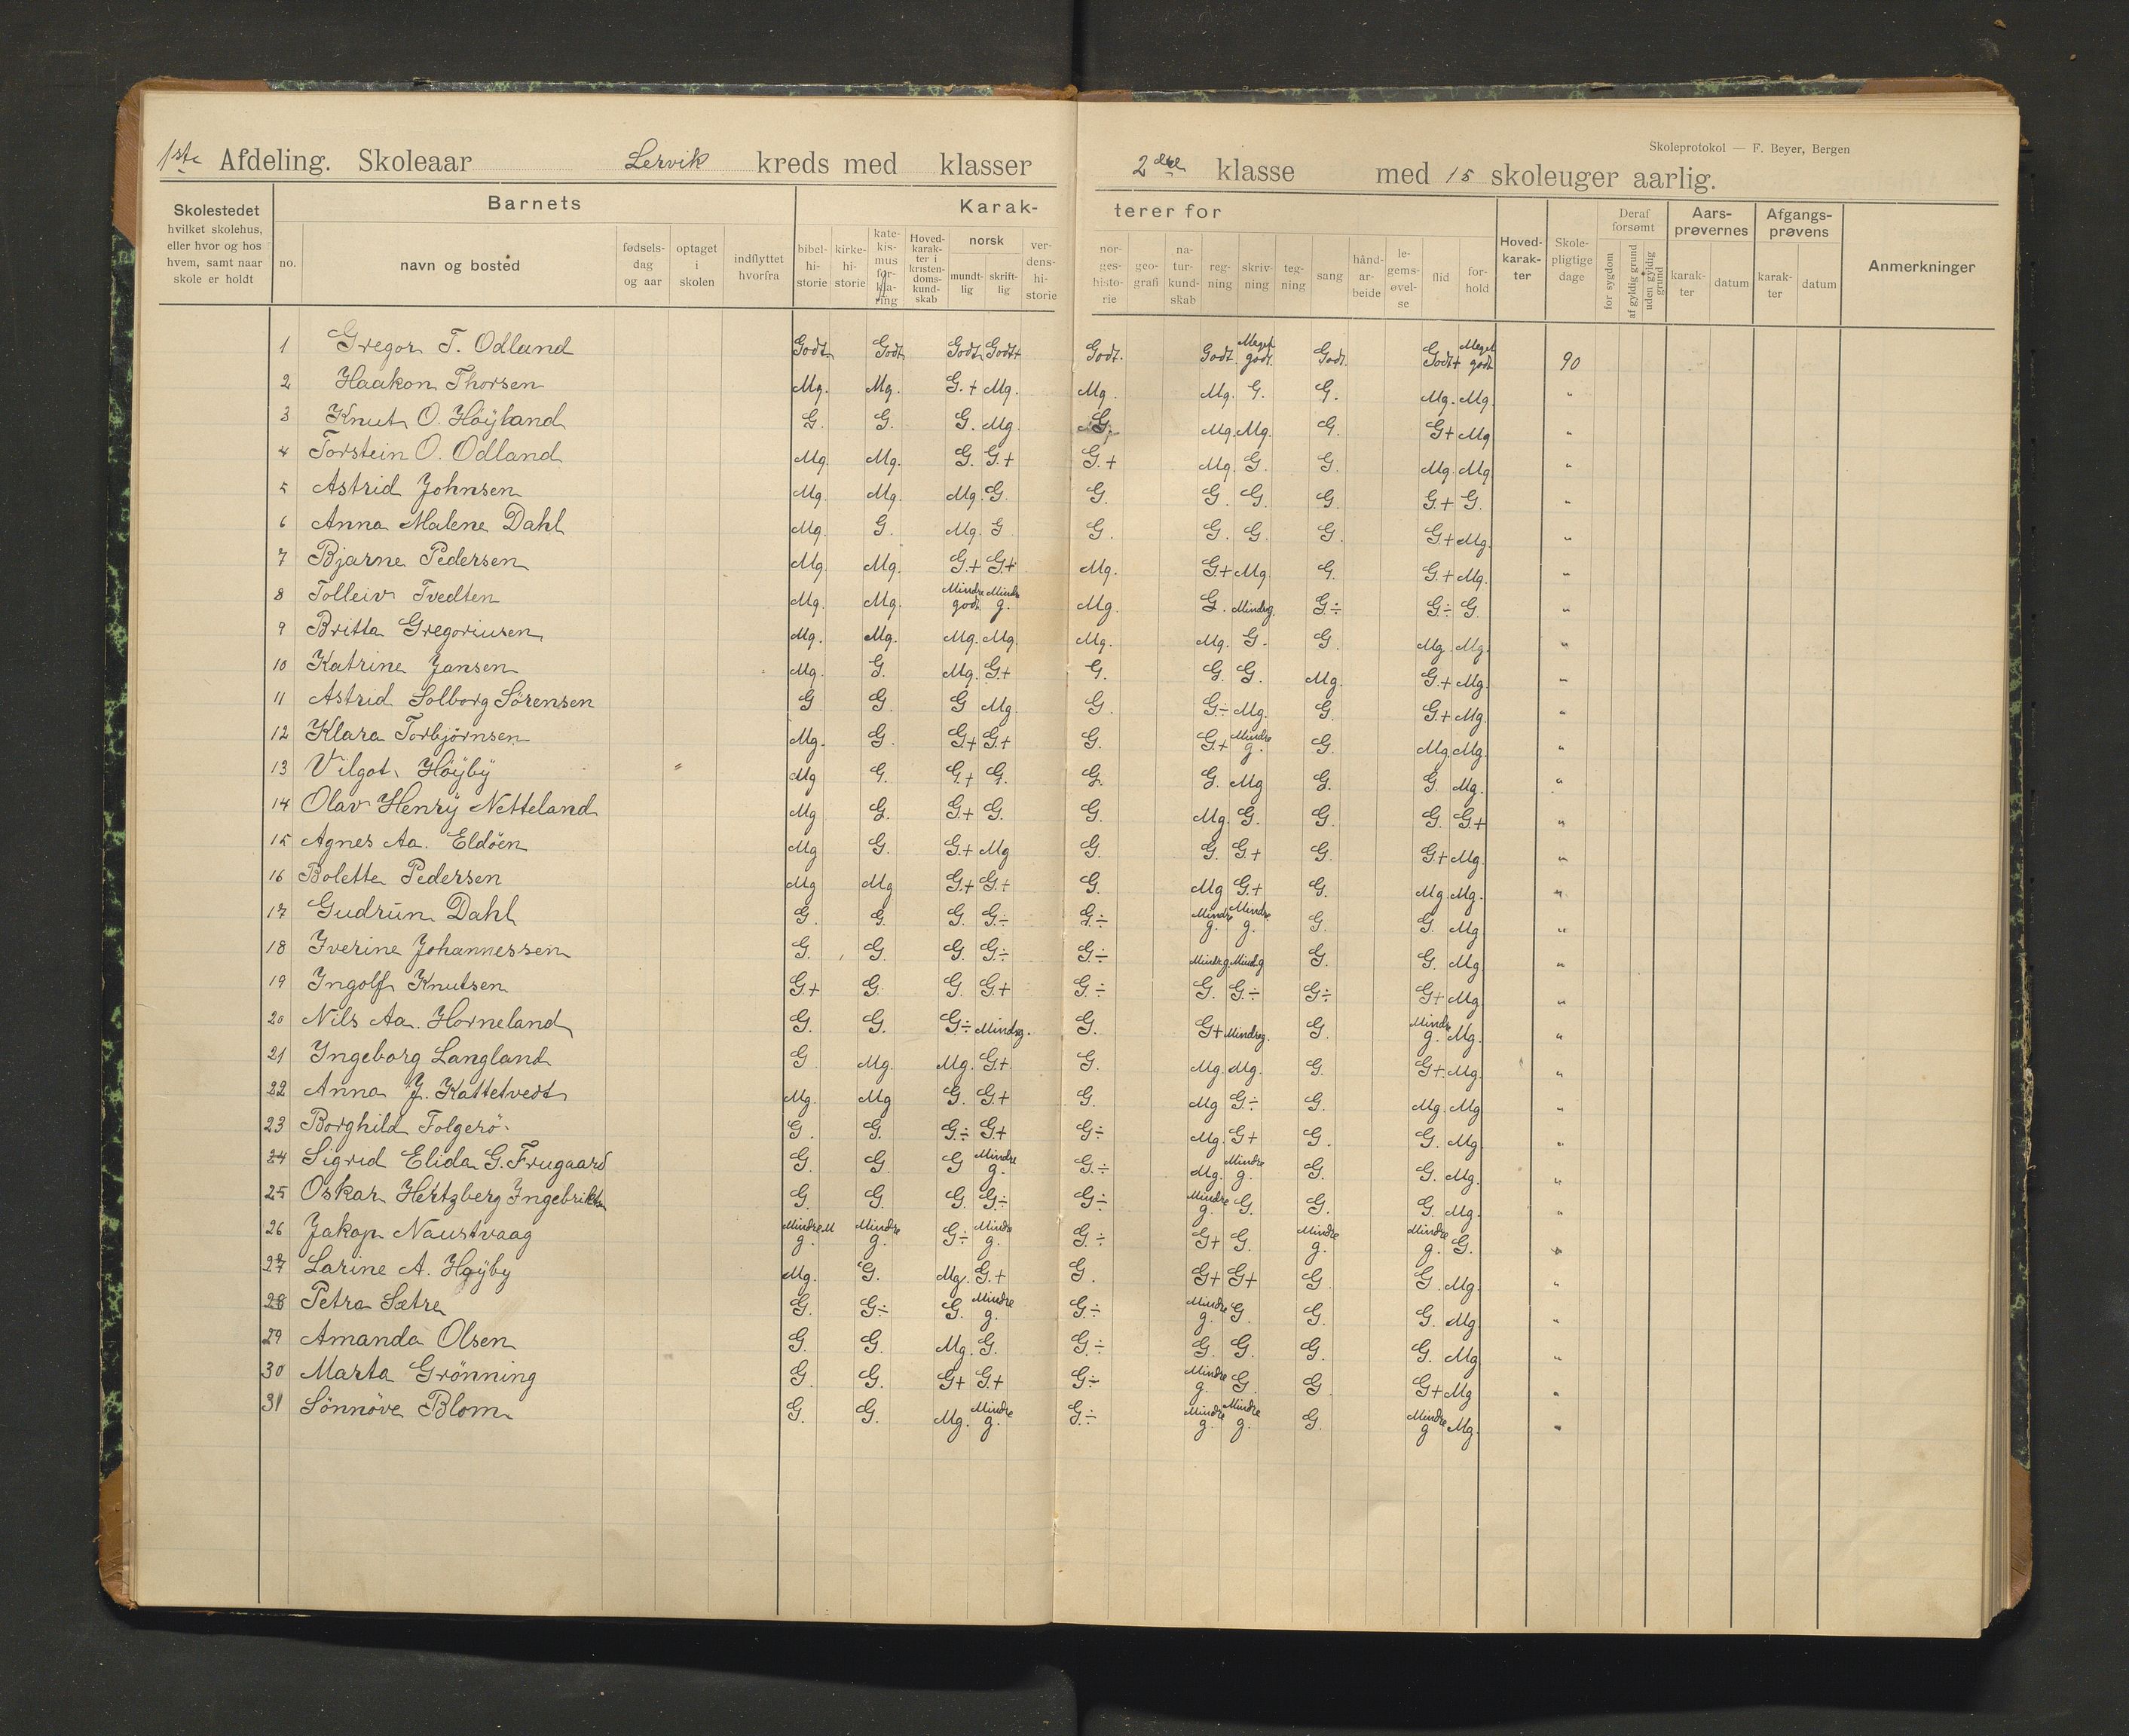 1ste Afdeling. Skoleaar Lervik kreds med klasser
Skoleprotokol — F. Beyer, Bergen
2den klasse med 15 skoleuger aarlig.
Skolestedet hvilket skolehus, eller hvor og hos hvem, samt naar skole er holdt
Barnets
no. navn og bosted fødsels-dag og aar optaget i skolen indflyttet hvorfra
Karak-terer for
bibel-hi-storie kirke-hi-storie kate-kis-mus for-kla-ring Hoved-karak-ter i kristen-doms-kund-skab norsk mundt-lig skrift-lig ver-dens-hi-storie
nor-ges-histo-rie geo-grafi na-tur-kund-skab reg-ning skriv-ning teg-ning sang hånd-ar-beide le-gems-øvel-se flid for-hold
Hoved-karak-ter Skole-pligtige dage Deraf forsømt for sygdom af gyldig grund uden gyldig grund Aars-prøvernes karak-ter datum Afgangs-prøvens karak-ter datum Anmerkninger
1 Gregor T. Odland Godt Godt Godt Godt+ Godt. Godt Meget godt. Godt. Godt+ Meget godt 90
2 Haakon Thorsen Mg. Mg. G.+ Mg. Mg. Mg. G. G. Mg. Mg. "
3 Knut O. Höyland G. G. G. Mg. G. Mg. Mg. G. G+ Mg "
4 Torstein O. Odland Mg. Mg. G. G.+ G.+ Mg. G. G. Mg. Mg "
5 Astrid Johnsen Mg. Mg. Mg. G. G. G. G. G. G.+ G. "
6 Anna Malene Dahl Mg. G. Mg. G G. G. G. G. G.+ Mg. "
7 Bjarne Pedersen Mg. Mg. G.+ G.+ Mg. G.+ Mg. G. G.+ Mg. "
8 Tolleiv Tvedten Mg. Mg. Mindre godt Mindre g. Mg. G. Mindre g. G.÷ G÷ G. "
9 Britta Gregoriusen Mg. Mg. Mg. Mg. Mg. Mg. G. G. Mg. Mg. "
10 Katrine Jansen Mg. G. Mg. G.+ G. G. G. Mg. G.+ Mg. "
11 Astrid Solborg Sörensen G G. G Mg. G. G÷ Mg. G. G.+ Mg. "
12 Klara Torbjörnsen Mg. G. G+ G.+ G. G+ Mindre g. G. Mg. Mg. "
13 Vilgot Höyby Mg G. G.+ G. G. G. Mg G. G. Mg. "
14 Olav Henry Netteland Mg G. G.+ G. G. Mg. G. G. G. G.+ "
15 Agnes Aa. Eldöen Mg G. G.+ Mg G. G. G.+ G. G.+ Mg. "
16 Bolette Pedersen Mg Mg G.+ G.+ G. Mg G.+ G. Mg. Mg. "
17 Gudrun Dahl G. G. G. G.÷ G.÷ Mindre g. Mindre g. G. G. Mg "
18 Iverine Johannessen G. G. G. G.÷ G.÷ Mindre g. Mind g G. G. Mg. "
19 Ingolf Knutsen G.+ G. G. G.+ G.÷ G. G.÷ G÷ G+ Mg "
20 Nils Aa. Horneland G. G. G.÷ Mindre g. G. G+ Mindre g. G. Mindre g. Mg. "
21 Ingeborg Langland G Mg. Mg. G.+ G. Mg. Mg. G. G+ Mg. "
22 Anna J. Kattetvedt Mg. Mg G. G.+ G. Mg G.÷ G. Mg. Mg "
23 Borghild Folgerö. G. G. G.÷ G.+ G.÷ Mg. G.+ G. G. Mg. "
24 Sigrid Elida G. Frugaard G. G. G Mindre g. G.÷ Mg. Mindre g. G. G. Mg. "
25 Oskar Hertzberg Ingebriktsen G. G. G. G.÷ G.÷ Mindre g. G. G. G. Mg. "
26 Jakop Naustvaag Mindre M g. Mindre g. G.÷ Mindre g. G.÷ G+ G. Mindre g. Mindre g. G. "
27 Larine A. Høyby Mg. G. Mg. G.+ G. G+ G+ G. G. Mg. "
28 Petra Sætre G. G÷ G. Mindre g. G.÷ Mindre g. G. G. G. Mg. "
29 Amanda Olsen G. G. Mg. G. G.÷ G. G. G. G. Mg "
30 Marta Grönning G. G. G+ G.+ G÷ Mindre g. G G G+ Mg "
31 Sönnöve Blom G. G. Mg. Mindre g. G.÷ Mindre g. Mindre g. G. Mindre g Mg. "